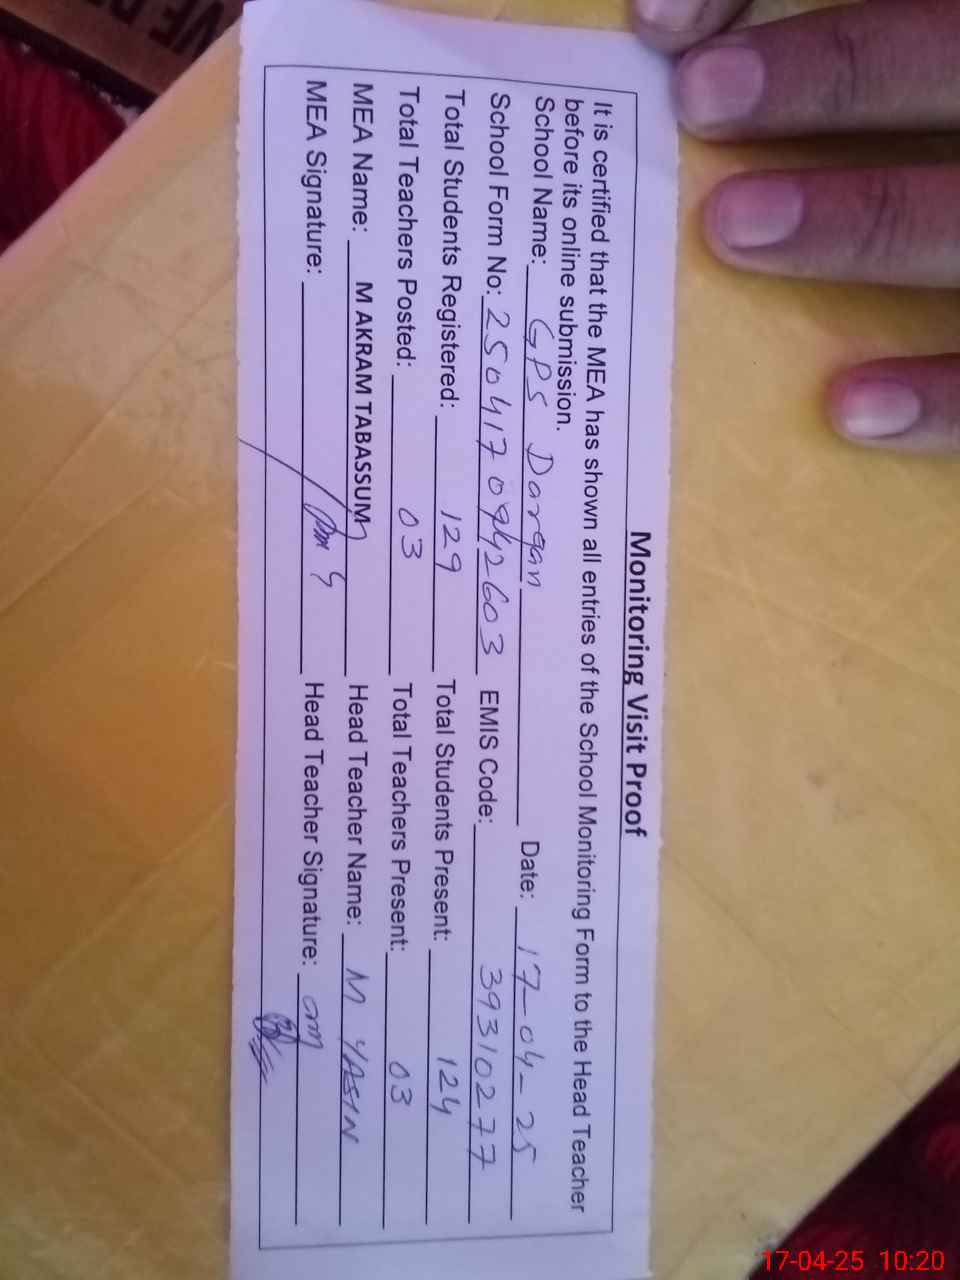 Monitoring Visit Proof
It is certified that the MEA has shown all entries of the School Monitoring Form to the Head Teacher
before its online submission.
School Name: GPS Dargan Date: 17-04-25
School Form No: 2504170942603 EMIS Code: 39310277
Total Students Registered: 129 Total Students Present: 124
Total Teachers Posted: 03 Total Teachers Present: 03
MEA Name: M AKRAM TABASSUM Head Teacher Name: M YASIN
MEA Signature: Head Teacher Signature:
17-04-25 10:20